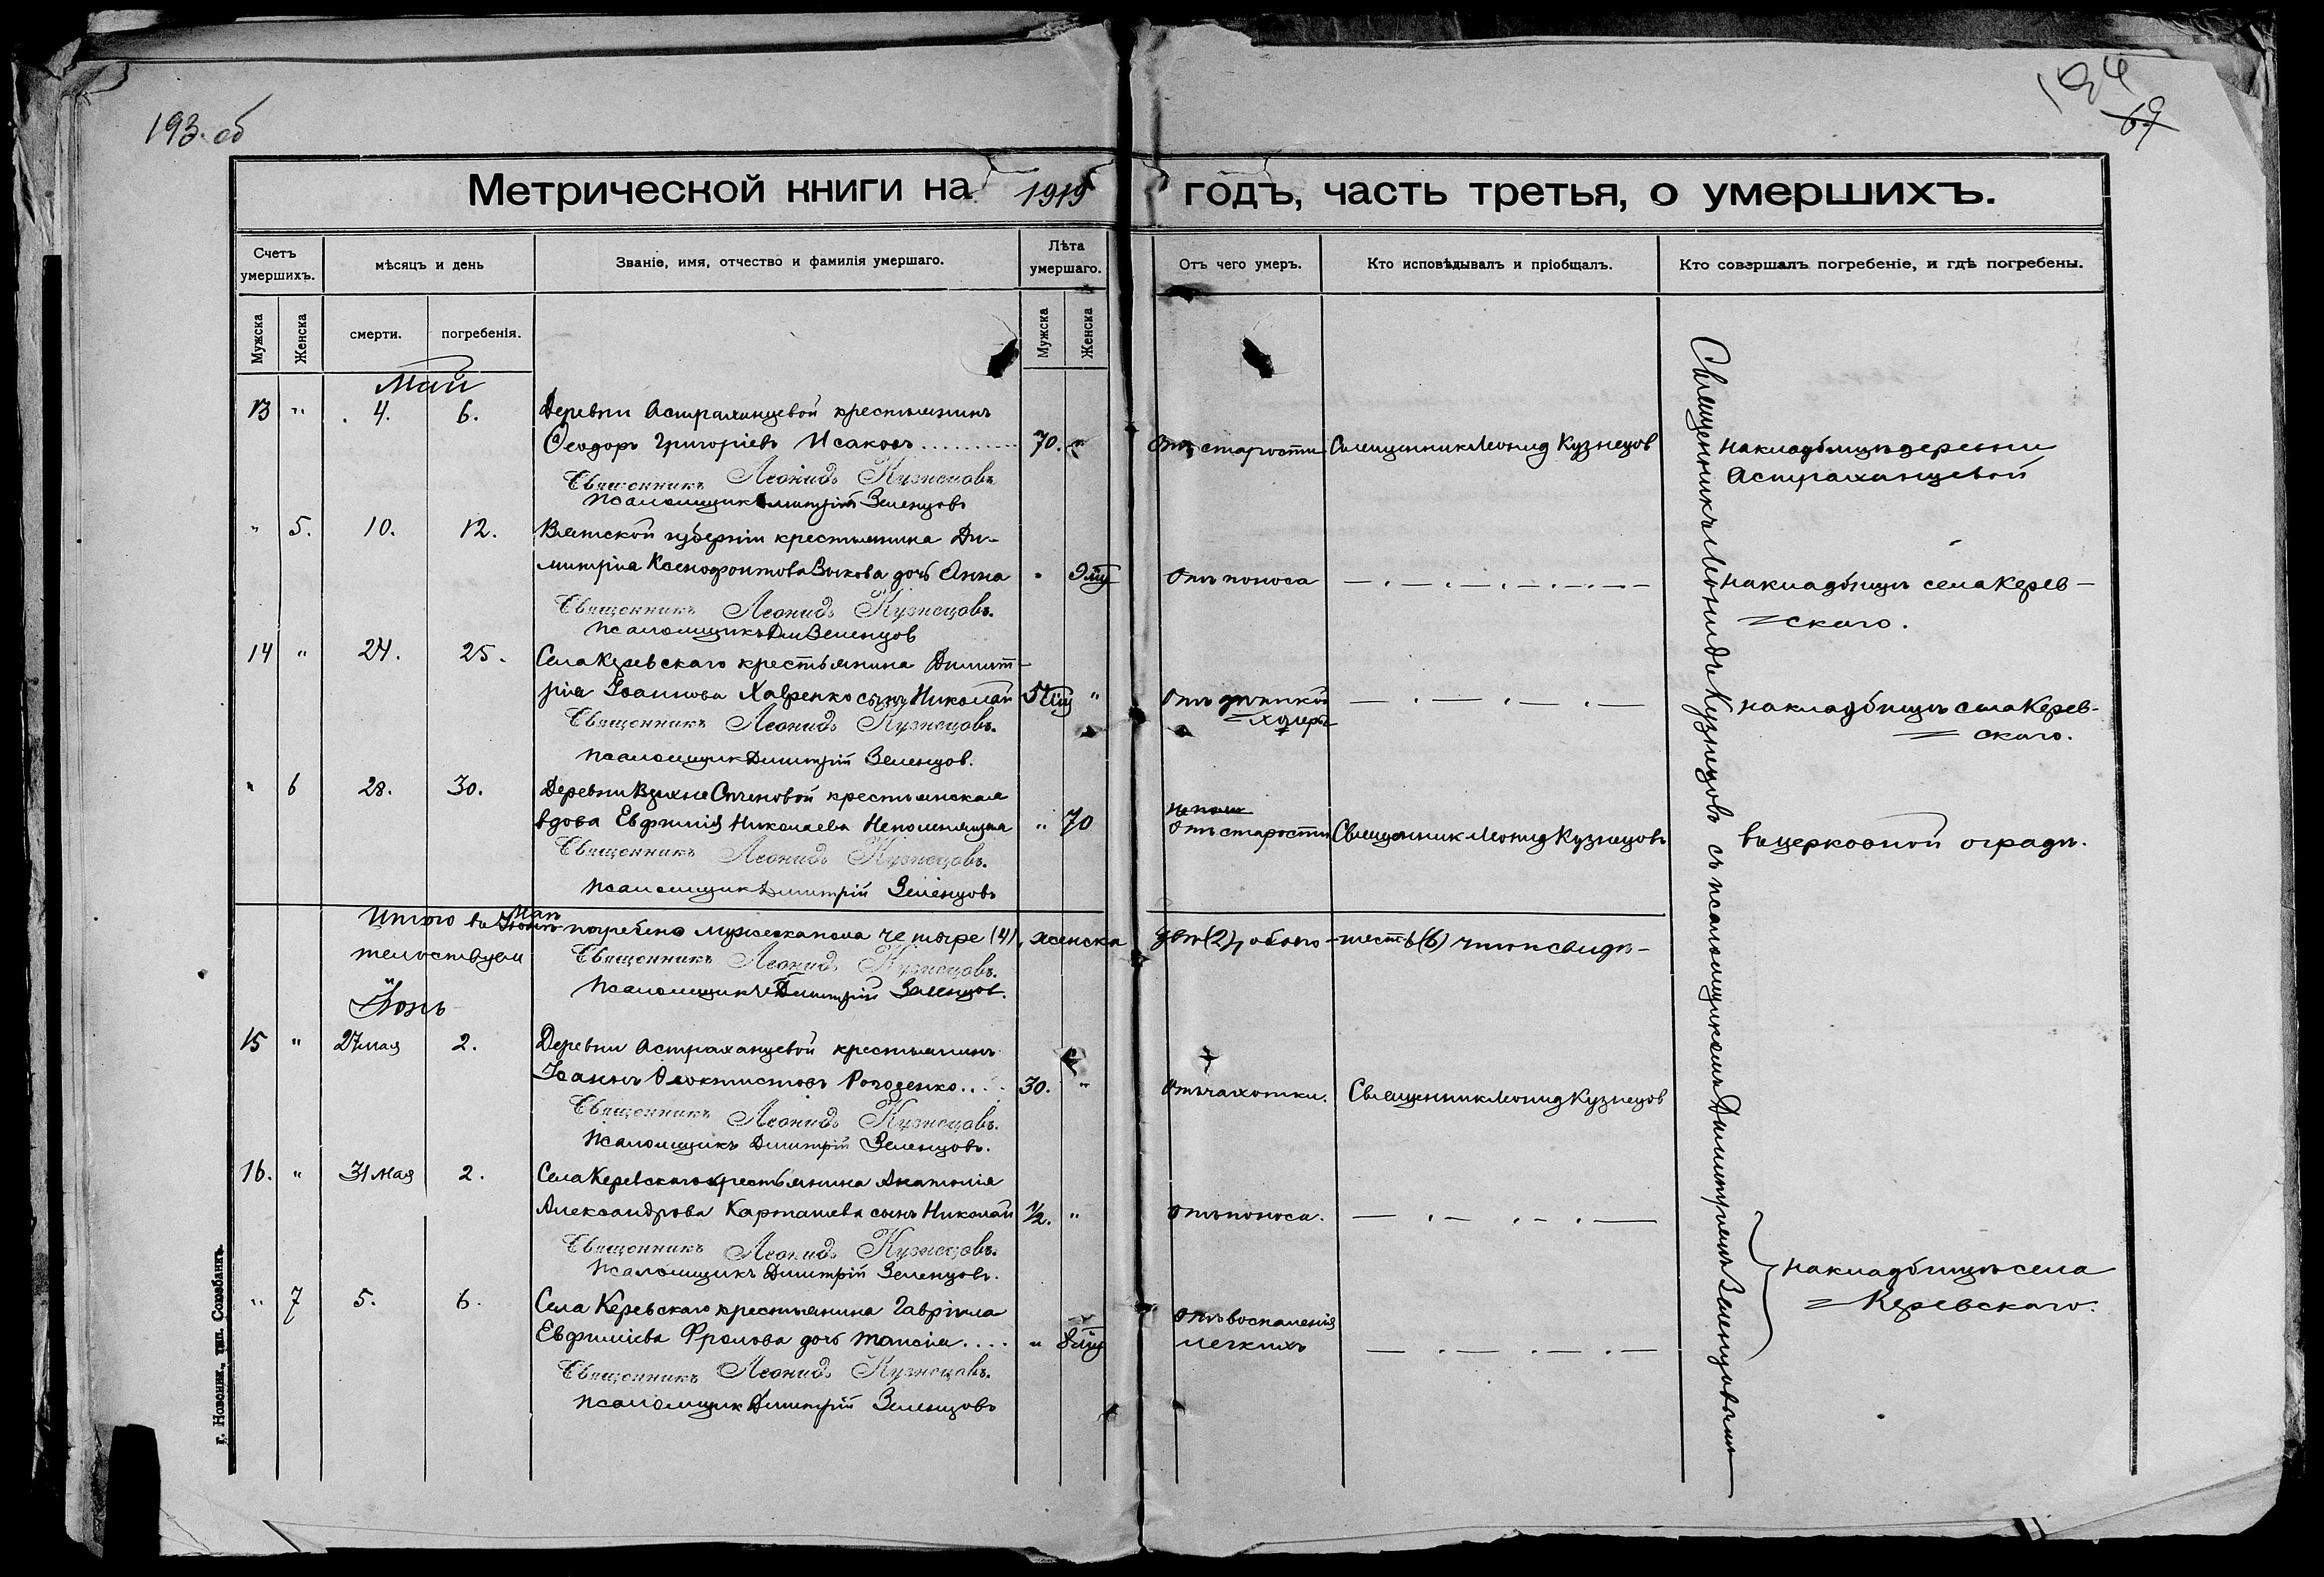 193 об
194
69
Метрической книги на 1919 годъ, часть третья, о умершихъ.
Счетъ умершихъ.
мѣсяцъ и день
Званіе, имя, отчество и фамилія умершаго.
Лѣта умершаго.
Отъ чего умеръ.
Кто исповѣдывалъ и пріобщалъ.
Кто совершалъ погребеніе, и гдѣ погребены.
Мужска
Женска
смерти.
погребенія.
Мужска
Женска
Май
13 " 4. 6. Деревни Астраханцевой крестьянинъ
Ѳеодоръ Григоріевъ Исаковъ 70. " Отъ старости Священник Леонид Кузнецов На кладбищѣ деревни
Астраханцевой
Священникъ Леонидъ Кузнецовъ
Псаломщикъ Димитрій Зеленцовъ
" 5. 10. 12. Вятской губерніи крестьянина Ди-
митрія Ксенофонтова Выкова дочь Анна " 9 м Отъ поноса На кладбищѣ села Керев-
скаго.
Священникъ Леонидъ Кузнецовъ.
Псаломщикъ Дм Зеленцов
14 " 24. 25. Села Керевскаго крестьянина Димит-
рія Іоаннова Хавренко сынъ Николай " Отъ дѣтской
холеры
На кладбищѣ села Керев-
скаго.
Священникъ Леонидъ Кузнецовъ.
Псаломщик Димитрій Зеленцов.
" 6 28. 30. Деревни крестьянская
вдова Евфимія Николаева Непомнящая " 70 Отъ старости Священник Леонид Кузнецовъ Въ церковной оградѣ.
Священникъ Леонидъ Кузнецовъ.
Псаломщик Димитрій Зеленцовъ
Итого въ Маѣ погребено мужеска пола четыре (4), женска двѣ (2), обоего - шесть (6) что и свидѣ-
тельствуем
Священникъ Леонидъ Кузнецовъ.
Псаломщикъ Димитрій Зеленцов.
Іюнь
15 " 27 мая 2. Деревни Астраханцевой крестьянинъ
Іоаннъ Ѳеоктистовъ Рогозенко 30. " Отъ чахотки. Священник Леонид Кузнецов
Священникъ Леонидъ Кузнецовъ.
Псаломщикъ Димитрій Зеленцовъ.
16. " 31 мая 2. Села Керевскаго крестьянина
Александрова Карташева сынъ Николай 1/2. " Отъ поноса.
Священникъ Леонидъ Кузнецовъ.
Псаломщикъ Димитрій Зеленцовъ.
На кладбищѣ села
Керевскаго.
" 7 5. 6. Села Керевскаго крестьянина Гавріила
Евфиміева Фролова дочь Таисія " 8 м Отъ воспаленія
легкихъ
Священникъ Леонидъ Кузнецовъ.
Псаломщик Димитрій Зеленцовъ
Священникъ Леонидъ Кузнецовъ съ псаломщикомъ Димитріемъ Зеленцовымъ
г. Новоник., тип. Союзбанкъ.